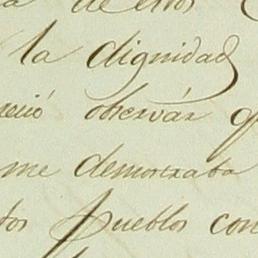 a de ellos
la dignidad
reció observár q
me demostraba
tos Pueblos con